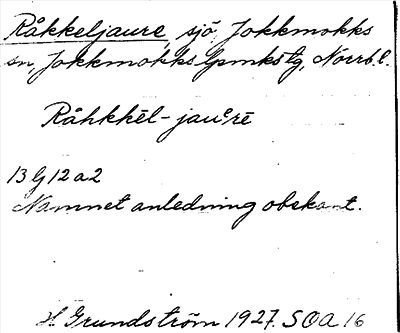 Råkkeljaure, sjö, Jokkmokks
sn, Jokkmokks lpmkstg, Norrb.l.
Råhkkēl-jauᵉrē
13 G 12 a 2
Namnet anledning obekant.
H Grundström 1927. SOA 16